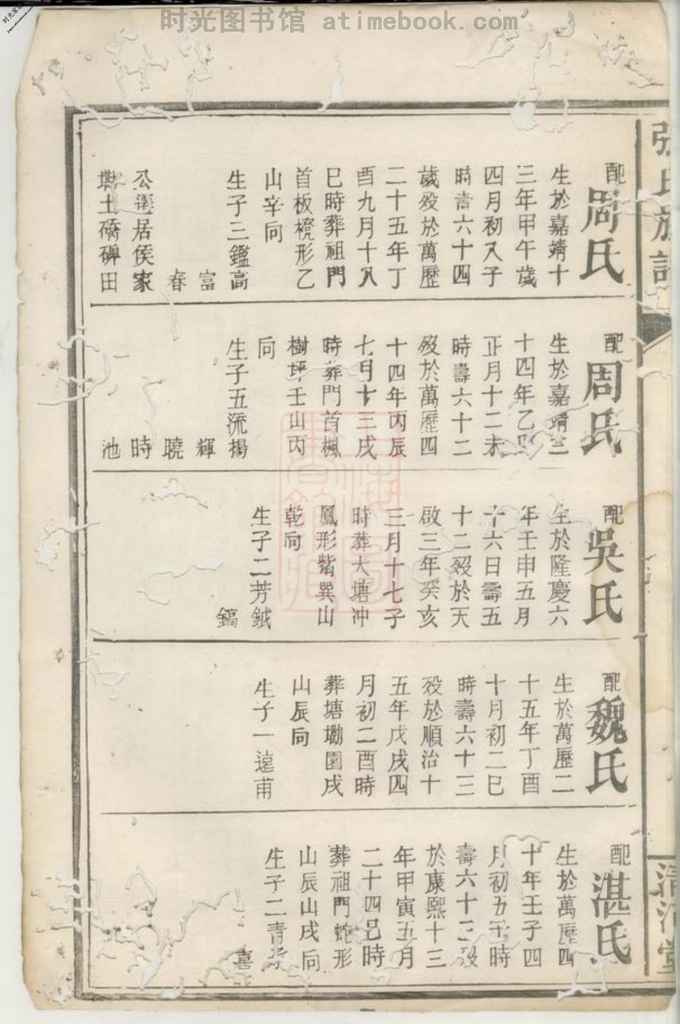 时光图书馆 atimebook.com
張氏族譜
清河堂
配周氏
生於嘉靖十
三年甲午歲
四月初八子
時壽六十四
歲歿於萬歷
二十五年丁
酉九月十八
巳時葬祖門
首板櫈形乙
山辛向
生子三鑑高
富
春
公遷居侯家
塅土橋碑田
配周氏
生於嘉靖二
十四年乙巳
正月十二未
時壽六十二
歿於萬歷四
十四年丙辰
七月十三戌
時葬門首楓
樹坪壬山丙
向
生子五流揚
輝
曉
時
池
配吳氏
生於隆慶六
年壬申五月
十六日壽五
十二歿於天
啟三年癸亥
三月十七子
時葬大塘冲
鳳形嘴巽山
乾向
生子二芳鉞
鎬
配魏氏
生於萬歷二
十五年丁酉
十月初二巳
時壽六十三
歿於順治十
五年戊戌四
月初二酉時
葬塘塝園戌
山辰向
生子一遠甫
配湛氏
生於萬歷四
十年壬子四
月初五 時
壽六十三歿
於康熙十三
年甲寅五月
二十四巳時
葬祖門蛇形
山辰山戌向
生子二青
喜